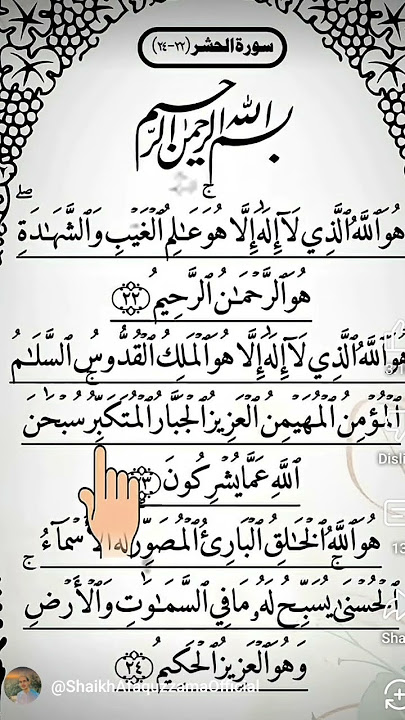 سورة الحشر (٢٢-٢٤)
بسم الله الرحمن الرحيم
هُوَ ٱللَّهُ ٱلَّذِي لَآ إِلَٰهَ إِلَّا هُوَ عَٰلِمُ ٱلْغَيْبِ وَٱلشَّهَٰدَةِ ۖ
هُوَ ٱلرَّحْمَٰنُ ٱلرَّحِيمُ ﴿٢٢﴾
هُوَ ٱللَّهُ ٱلَّذِي لَآ إِلَٰهَ إِلَّا هُوَ ٱلْمَلِكُ ٱلْقُدُّوسُ ٱلسَّلَٰمُ
ٱلْمُؤْمِنُ ٱلْمُهَيْمِنُ ٱلْعَزِيزُ ٱلْجَبَّارُ ٱلْمُتَكَبِّرُ ۚ سُبْحَٰنَ
ٱللَّهِ عَمَّا يُشْرِكُونَ
هُوَ ٱللَّهُ ٱلْخَٰلِقُ ٱلْبَارِئُ ٱلْمُصَوِّرُ ۖ لَهُ ٱلْأَسْمَآءُ
ٱلْحُسْنَىٰ ۚ يُسَبِّحُ لَهُۥ مَا فِي ٱلسَّمَٰوَٰتِ وَٱلْأَرْضِ ۖ
وَهُوَ ٱلْعَزِيزُ ٱلْحَكِيمُ ﴿٢٤﴾
@ShaikhAfaquzzamaOfficial